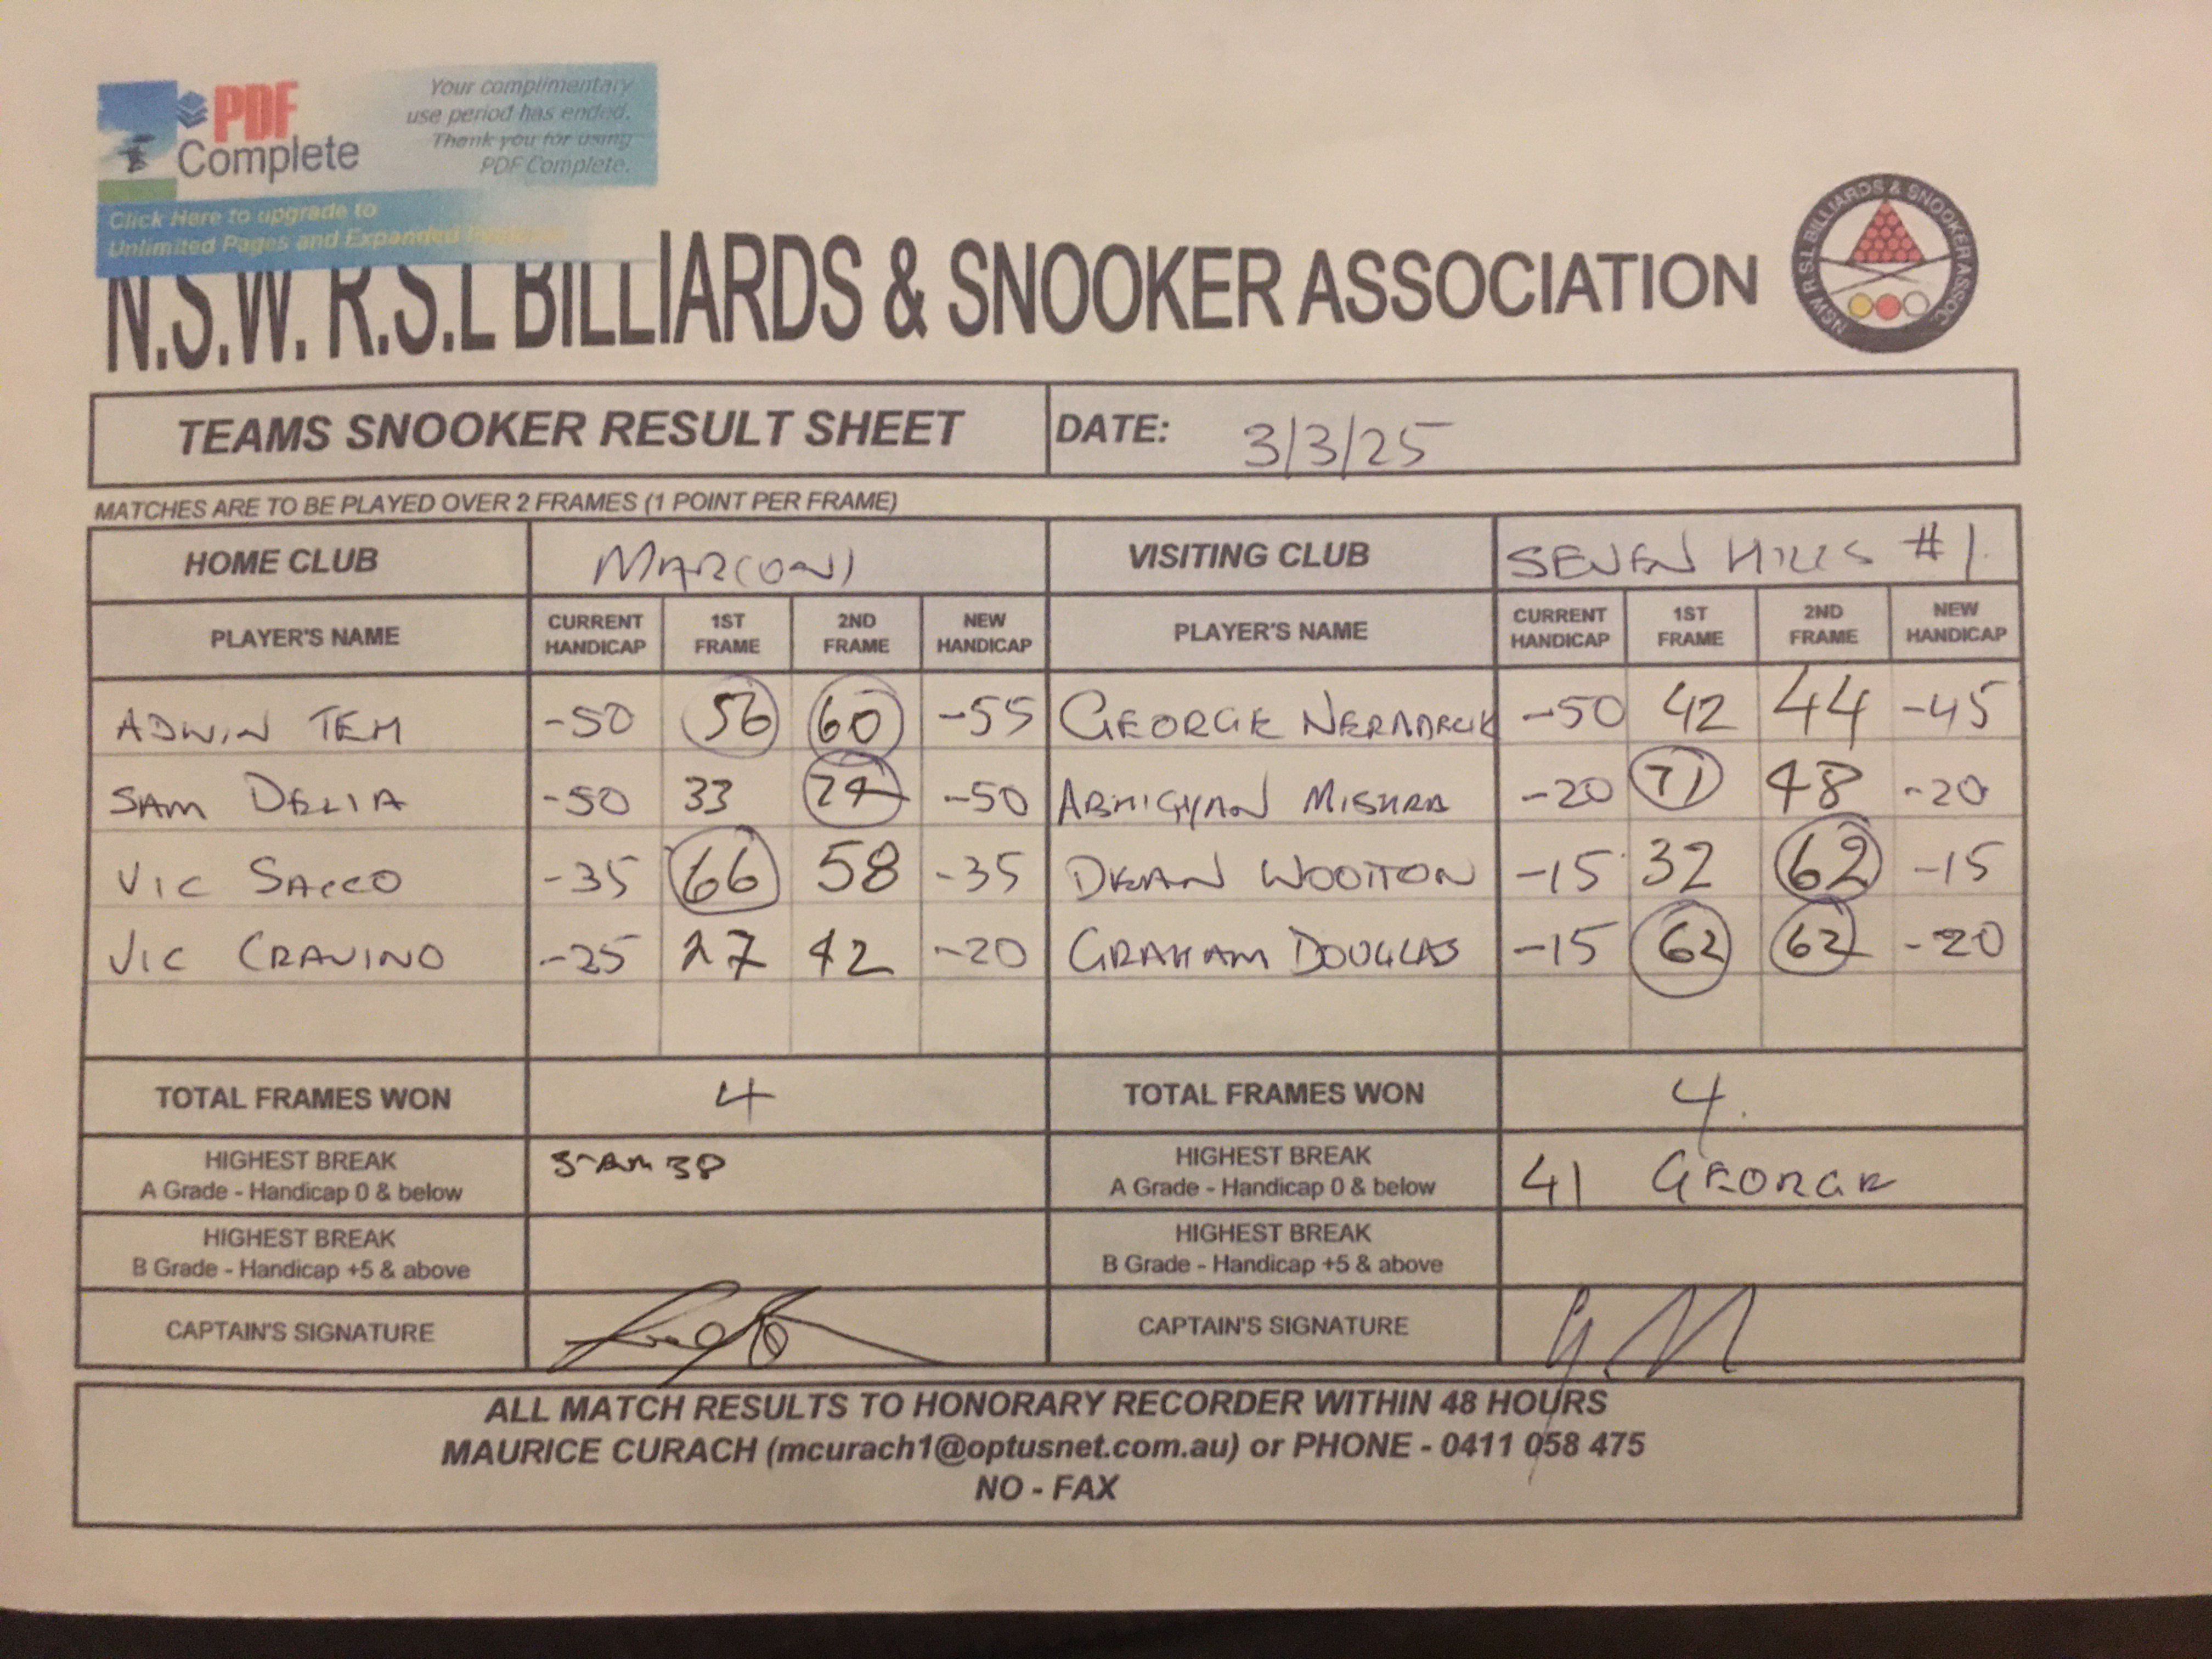 PDF Complete
Your complimentary use period has ended. Thank you for using PDF Complete.
Click Here to upgrade to
Unlimited Pages and Expanded
N.S.W. R.S.L BILLIARDS & SNOOKER ASSOCIATION
NSW R.S.L BILLIARDS & SNOOKER ASSOC.
TEAMS SNOOKER RESULT SHEET DATE: 3/3/25
MATCHES ARE TO BE PLAYED OVER 2 FRAMES (1 POINT PER FRAME)
HOME CLUB MARCONI VISITING CLUB SEVEN HILLS #1
PLAYER'S NAME CURRENT HANDICAP 1ST FRAME 2ND FRAME NEW HANDICAP PLAYER'S NAME CURRENT HANDICAP 1ST FRAME 2ND FRAME NEW HANDICAP
ADWIN TEM -50 56 60 -55 GEORGE -50 42 44 -45
SAM DELIA -50 33 74 -50 ABHIGYAN MISHRA -20 71 48 -20
VIC SACCO -35 66 58 -35 DEAN WOOTTON -15 32 62 -15
VIC CRAVINO -25 27 42 -20 GRAHAM DOUGLAS -15 62 62 -20
TOTAL FRAMES WON 4 TOTAL FRAMES WON 4
HIGHEST BREAK SAM 38 HIGHEST BREAK 41 GEORGE
A Grade - Handicap 0 & below A Grade - Handicap 0 & below
HIGHEST BREAK HIGHEST BREAK
B Grade - Handicap +5 & above B Grade - Handicap +5 & above
CAPTAIN'S SIGNATURE CAPTAIN'S SIGNATURE
ALL MATCH RESULTS TO HONORARY RECORDER WITHIN 48 HOURS
MAURICE CURACH (mcurach1@optusnet.com.au) or PHONE - 0411 058 475
NO - FAX